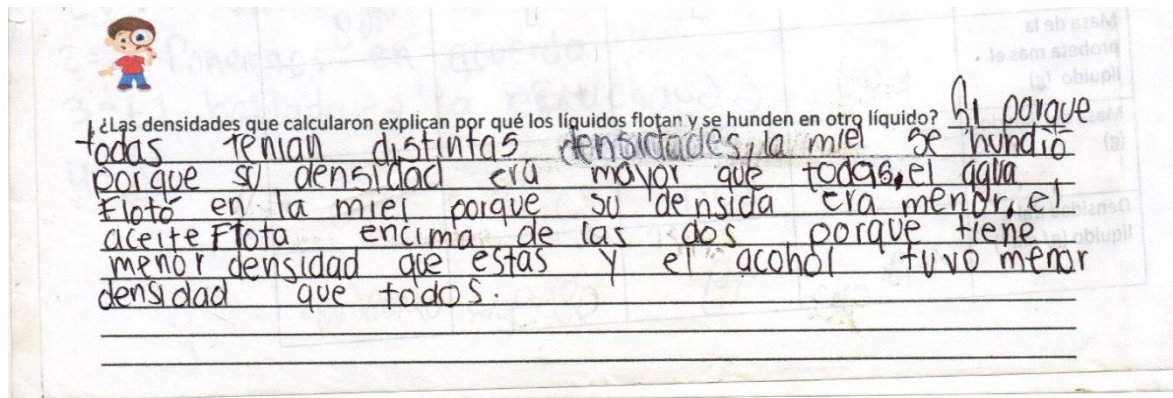 ¿Las densidades que calcularon explican por qué los líquidos flotan y se hunden en otro líquido? Si porque
todas tenian distintas densidades, la miel se hundió
porque su densidad era mayor que todas, el agua
Flotó en la miel porque su densida era menor, el
aceite Flota encima de las dos porque tiene
menor densidad que estas y el acohol tuvo menor
densidad que todos.